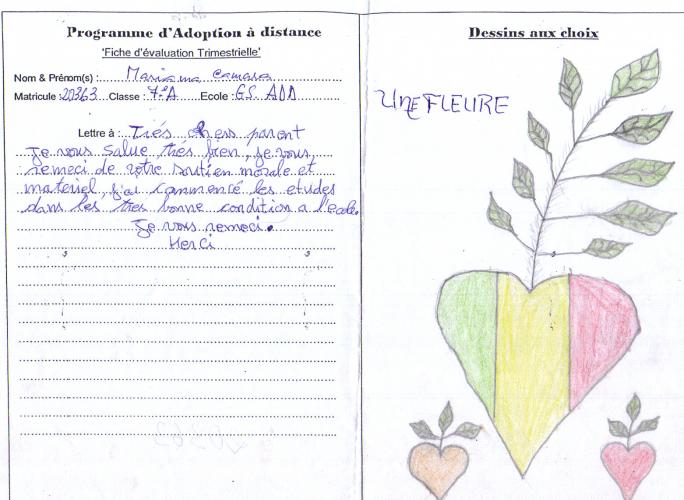 Programme d'Adoption à distance
'Fiche d'évaluation Trimestrielle'
Nom & Prénom(s) : Mariama Camara
Matricule : 20363 Classe : 7eA Ecole : GS ADD
Lettre à : Triés chers parent
Je vous salue très bien, je vous
remeci de votre soutien morale et
materiel, j'ai commencé les etudes
dans les tres bonne condition a l'ecole.
Je vous remeci.
Merci
Dessins aux choix
UNE FLEURE